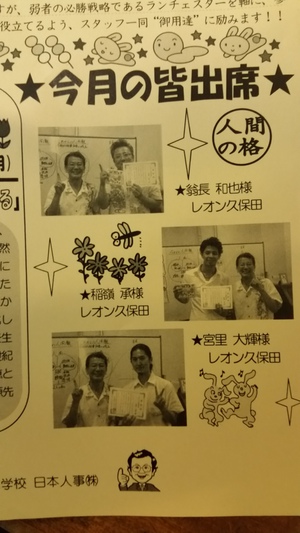 すが、弱者の必勝戦略であるランチェスターを軸に、
役立てるよう、スタッフ一同“御用達”に励みます！！
★今月の皆出席★
人間の格
★翁長 和也様
レオン久保田
★稲嶺 承様
レオン久保田
★宮里 大輝様
レオン久保田
学校 日本人事㈱